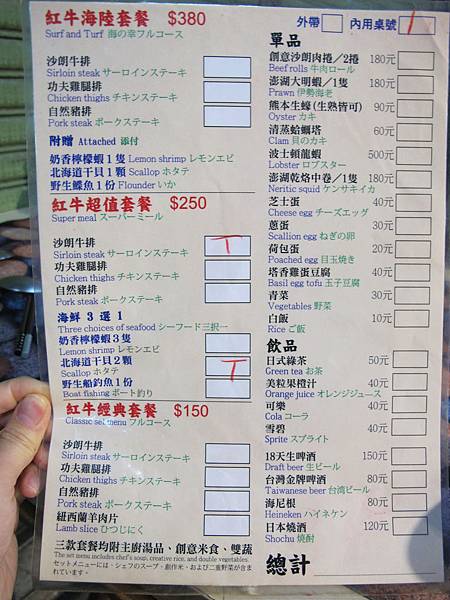 紅牛海陸套餐 $380
Surf and Turf 海の幸フルコース
沙朗牛排
Sirloin steak サーロインステーキ
功夫雞腿排
Chicken thighs チキンステーキ
自然豬排
Pork steak ポークステーキ
附贈 Attached 添付
奶香檸檬蝦1隻 Lemon shrimp レモンエビ
北海道干貝1顆 Scallop ホタテ
野生鰈魚1份 Flounder いか
紅牛超值套餐 $250
Super meal スーパーミール
沙朗牛排
Sirloin steak サーロインステーキ
T
功夫雞腿排
Chicken thighs チキンステーキ
自然豬排
Pork steak ポークステーキ
海鮮 3 選 1
Three choices of seafood シーフード三択一
奶香檸檬蝦3隻
Lemon shrimp レモンエビ
北海道干貝2顆
Scallop ホタテ
T
野生船釣魚1份
Boat fishing ボート釣り
紅牛經典套餐 $150
Classic set menu フルコース
沙朗牛排
Sirloin steak サーロインステーキ
功夫雞腿排
Chicken thighs チキンステーキ
自然豬排
Pork steak ポークステーキ
紐西蘭羊肉片
Lamb slice ひつじにく
三款套餐均附主廚湯品、創意米食、雙蔬
The set menu includes chef's soup, creative rice, and double vegetables.
セットメニューには、シェフのスープ、創作米、および二重野菜が含まれています。
外帶 內用桌號 1
單品
創意沙朗肉捲/2捲 180元
Beef rolls 牛肉ロール
澎湖大明蝦/1隻 180元
Prawn 伊勢海老
熊本生蠔(生熟皆可) 90元
Oyster カキ
清蒸蛤蠣塔 60元
Clam 貝のカキ
波士頓龍蝦 500元
Lobster ロブスター
澎湖乾烙中卷/1隻 180元
Neritic squid ケンサキイカ
芝士蛋 40元
Cheese egg チーズエッグ
蔥蛋 30元
Scallion egg ねぎの卵
荷包蛋 20元
Poached egg 目玉焼き
塔香雞蛋豆腐 40元
Basil egg tofu 玉子豆腐
青菜 30元
Vegetables 野菜
白飯 10元
Rice ご飯
飲品
日式綠茶 50元
Green tea お茶
美粒果橙汁 40元
Orange juice オレンジジュース
可樂 40元
Cola コーラ
雪碧 40元
Sprite スプライト
18天生啤酒 150元
Draft beer 生ビール
台灣金牌啤酒 80元
Taiwanese beer 台湾ビール
海尼根 80元
Heineken ハイネケン
日本燒酒 120元
Shochu 焼酎
總計